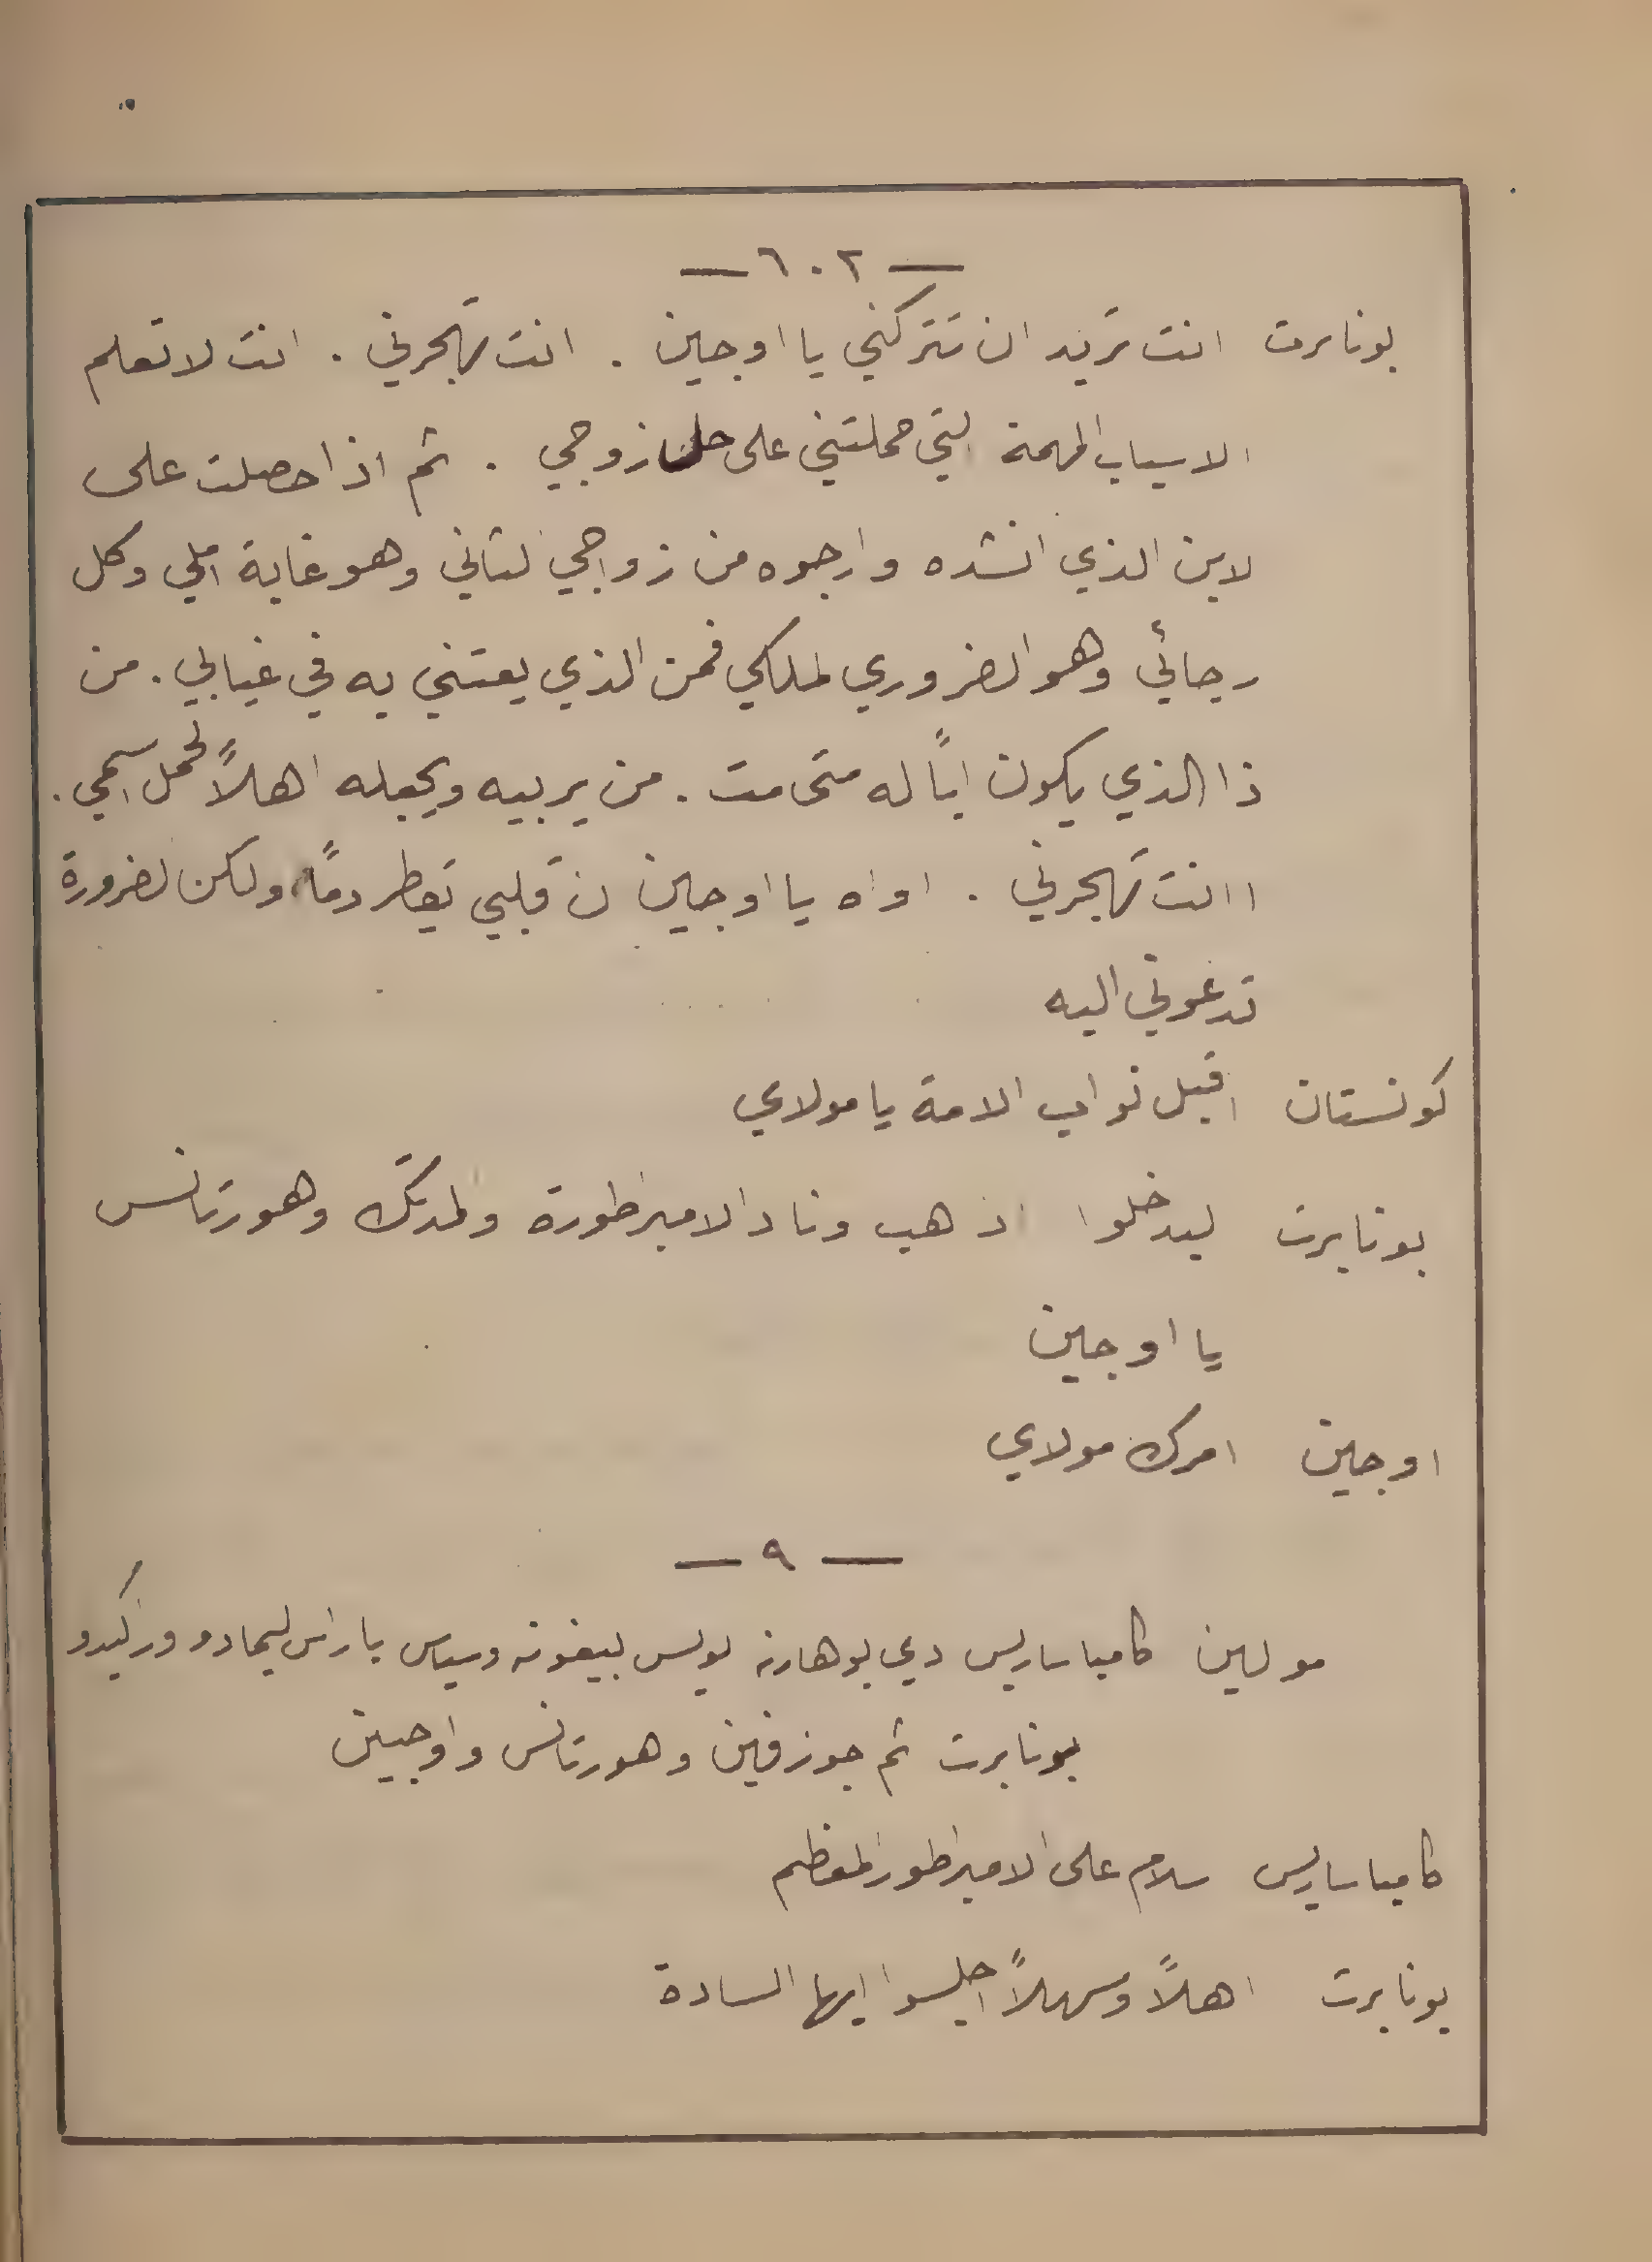 — ٦٠٢ —
بونابرت انت تريد ان تتركني يا اوجين . انت تهجرني . انت لا تعلم
الاسباب المهمة التي حملتني على حل زوجي . ثم اذا حصلت على
لابن الذي انشده وارجوه من زواجي الثاني وهو غاية املي وكل
رجائي وهو الضروري لملكي فمن الذي يعتني به في غيابي . من
ذا الذي يكون اباً له متى مت . من يربيه ويجعله اهلاً لحمل اسمي .
ا انت تهجرني . اواه يا اوجين ان قلبي يقطر دماً ولكن لضرورة
تدعوني اليه
كونستان اقبل نواب الامة يا مولاي
بونابرت ليدخلوا اذهب وناد الامبراطورة والدتك وهورتانس
يا اوجين
اوجين امرك مولاي
— ٩ —
مولين كامباساريس دي بوهارنه بولس بيغونه وسياس باراس ليمادو وراكيدو
بونابرت ثم جوزفين وهورتانس واوجين
كامباساريس سلام على الامبراطور المعظم
بونابرت اهلاً وسهلاً اجلسوا ايها السادة